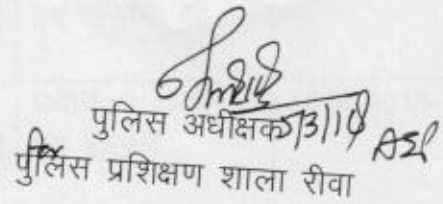 पुलिस अधीक्षक
पुलिस प्रशिक्षण शाला रीवा